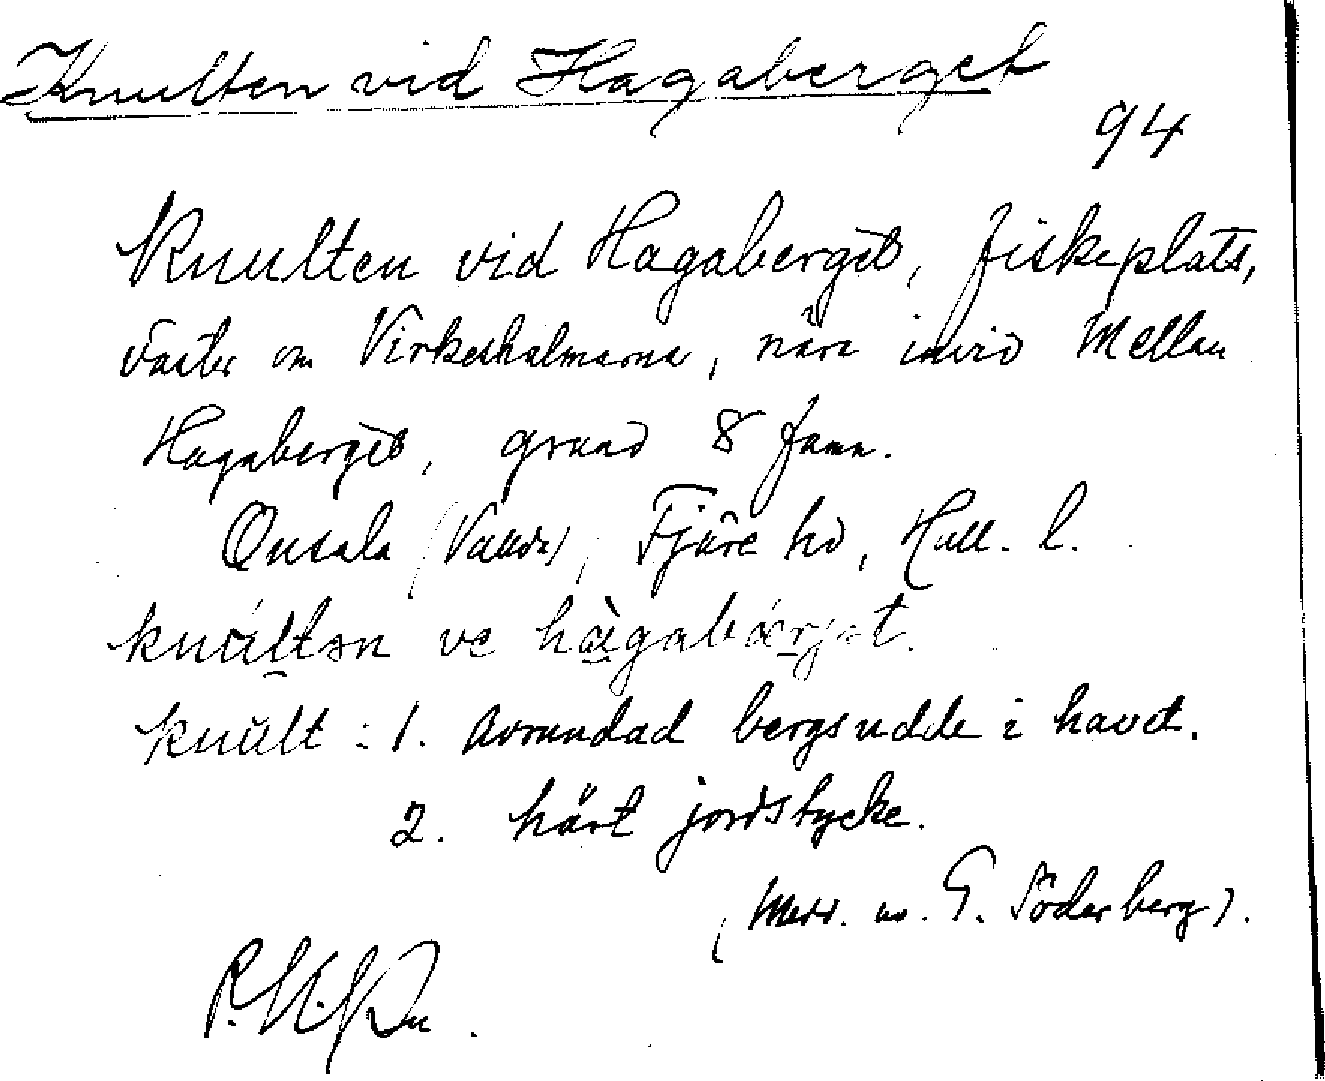 Knulten vid Hagaberget
94
Knulten vid Hagaberget, fiskeplats,
väster om Virkesholmarna, nära invid Mellan
Hagaberget, grund 8 famn.
Onsala (Vallda), Fjäre hd, Hall. l.
knúltən ve hàgabærjət.
knult : 1. Avrundad bergsudde i havet.
2. hårt jordstycke.
(Medd. av G. Söderberg).